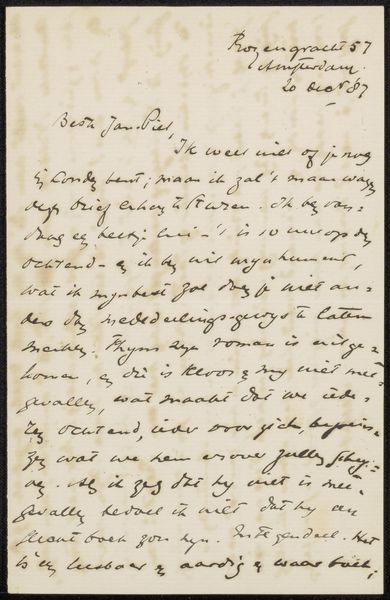 Rozengracht 57
Amsterdam.
20 Dec 87
Beste Jan Piet,
Ik weet niet of je nog
in Londen bent; maar ik zal 't maar wagen
dezen brief erheen te sturen. Ik ben van-
daag een beetje lui - 't is 10 uur op den
ochtend - en ik ben uit mijn humeur,
wat ik mijn best zal doen je niet an-
ders dan mededeelings-gewijs te laten
merken. Thijm zijn roman is uitge-
komen, en die is Kloos en mij niet mee-
gevallen, wat maakt dat we iede-
ren ochtend, ieder voor zich, bepein-
zen wat we hem erover zullen schrij-
ven. Als ik zeg dat hij niet is mee-
gevallen bedoel ik niet dat hij een
slecht boek zou zijn. Integendeel. Het
is een leesbaar en aardig en waar boek,